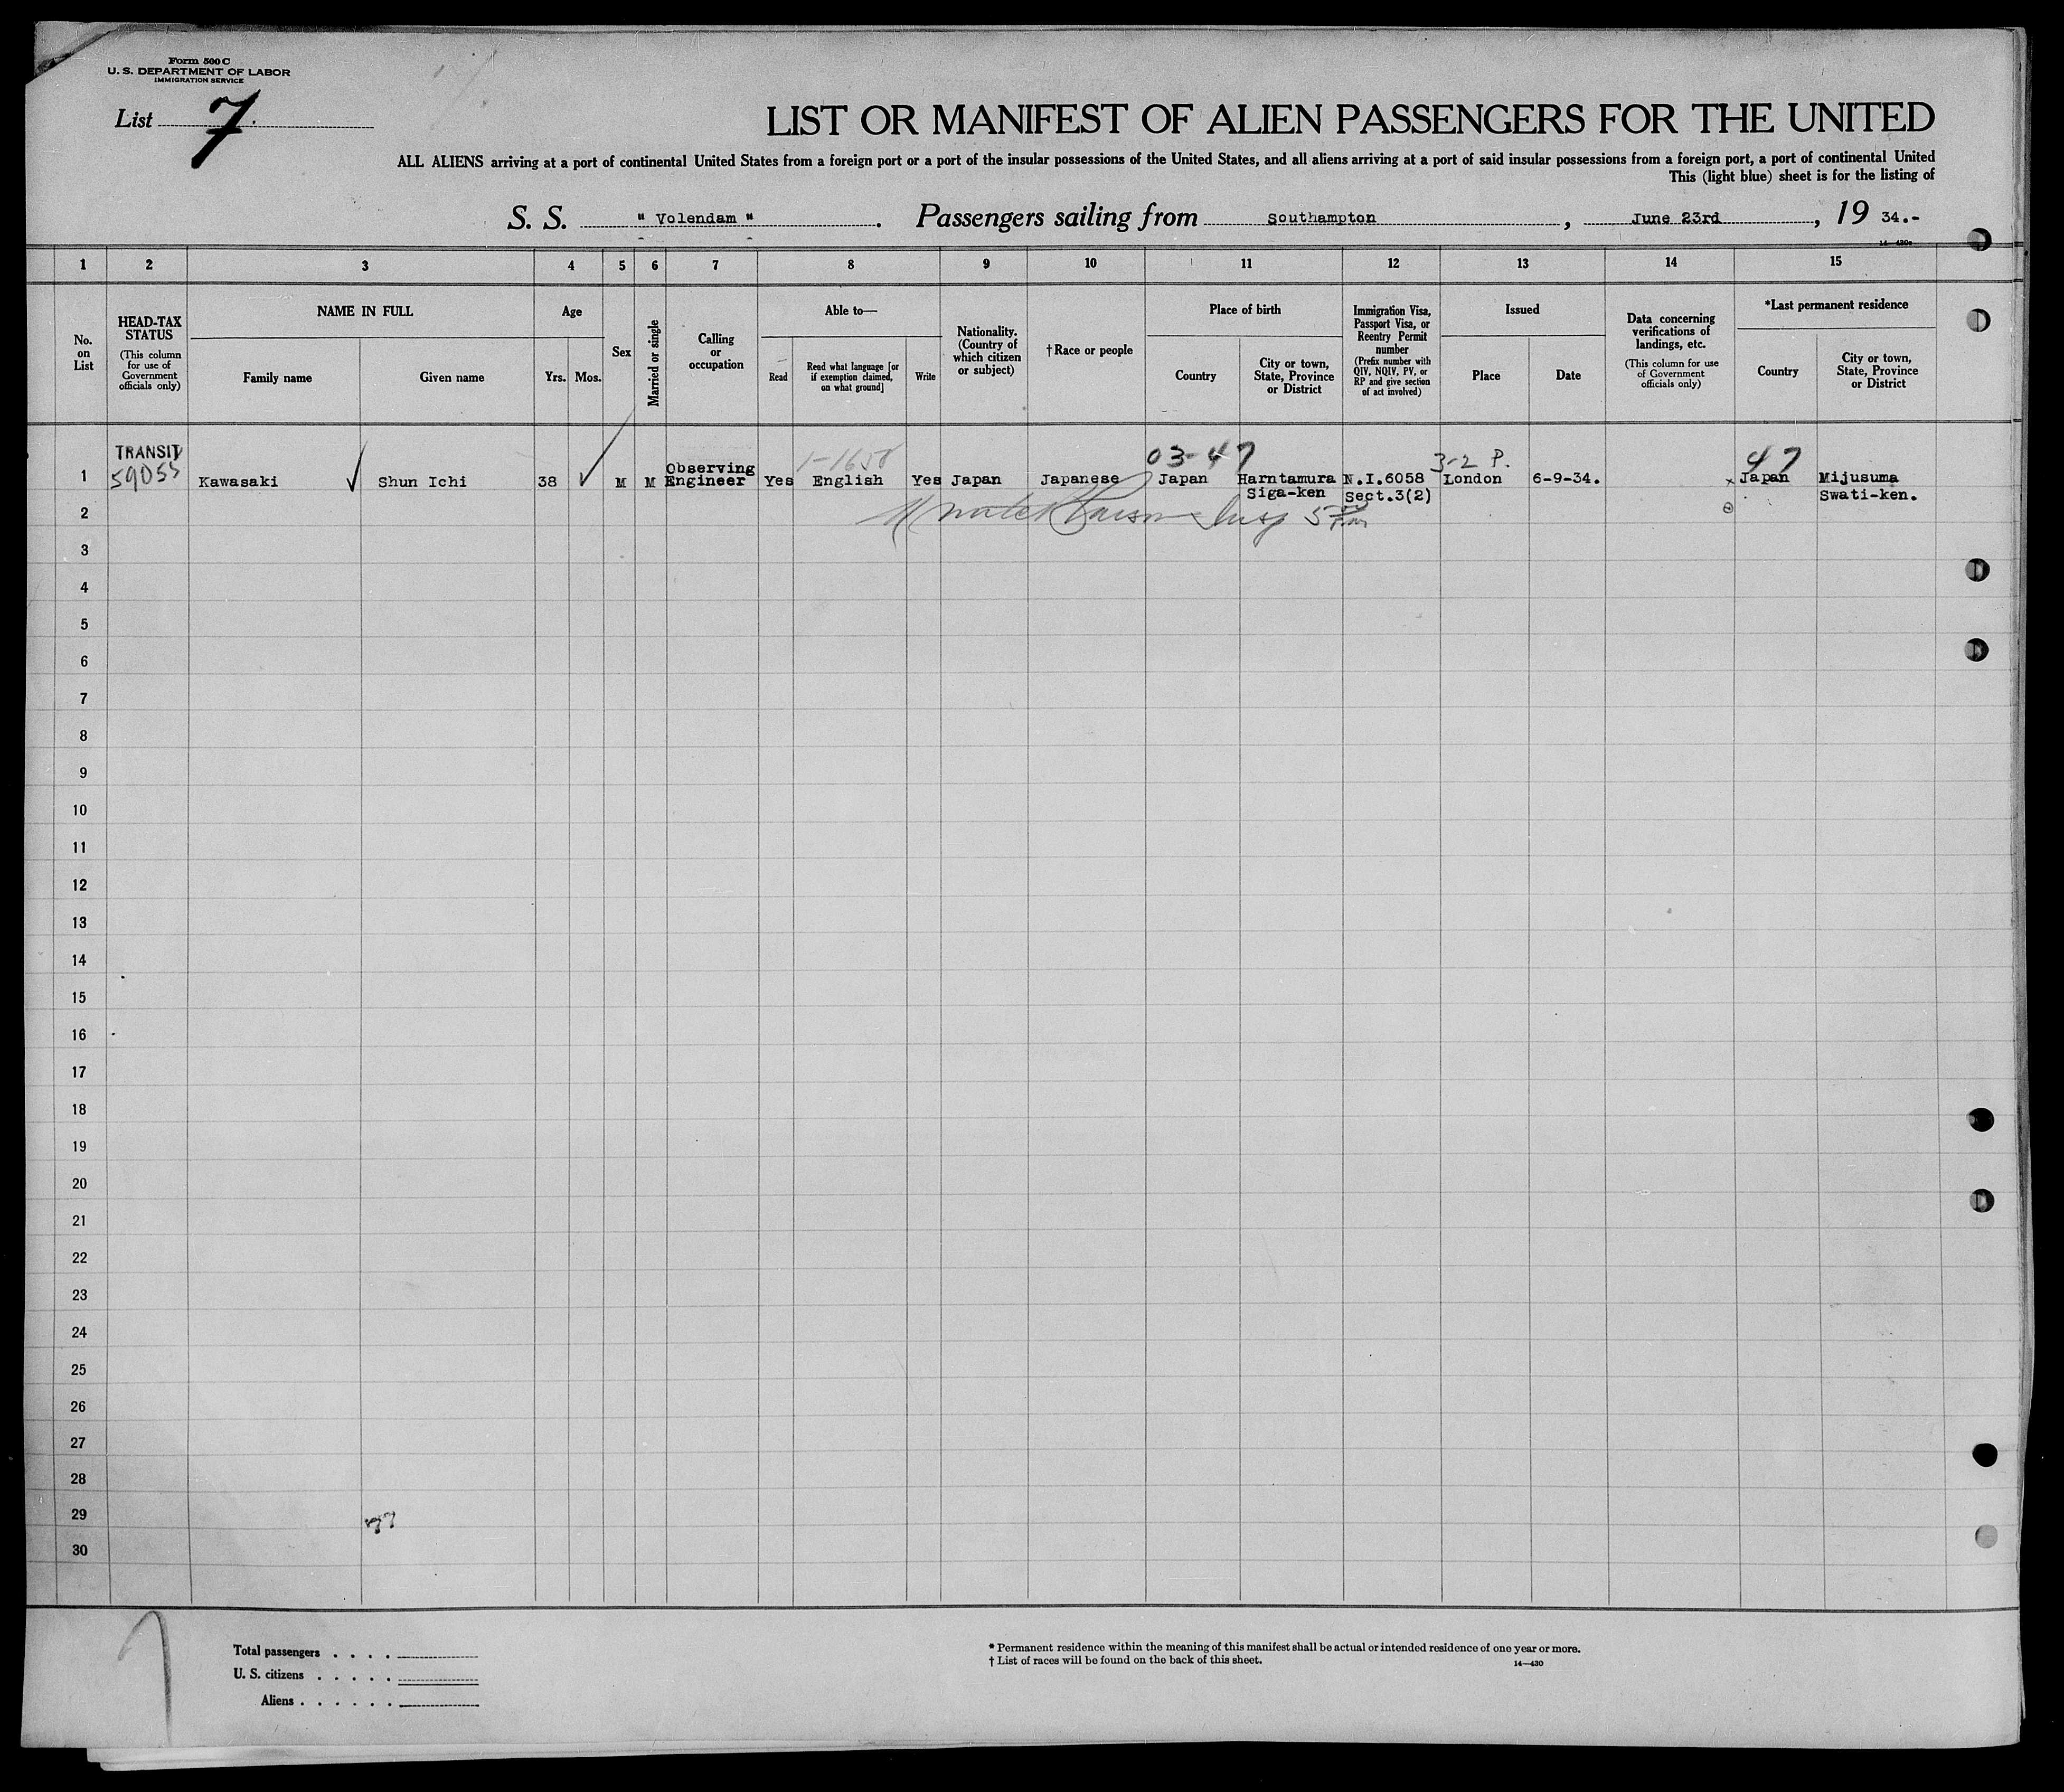 Form 500 C
U. S. DEPARTMENT OF LABOR
IMMIGRATION SERVICE
List 7.
LIST OR MANIFEST OF ALIEN PASSENGERS FOR THE UNITED
ALL ALIENS arriving at a port of continental United States from a foreign port or a port of the insular possessions of the United States, and all aliens arriving at a port of said insular possessions from a foreign port, a port of continental United
This (light blue) sheet is for the listing of
S. S. " Volendam ". Passengers sailing from Southampton, June 23rd, 19 34.-
1 2 3 4 5 6 7 8 9 10 11 12 13 14 15
No. on List
HEAD-TAX STATUS
(This column for use of Government officials only)
NAME IN FULL
Family name
Given name
Age
Yrs. Mos.
Sex
Married or single
Calling or occupation
Able to—
Read
Read what language [or if exemption claimed, on what ground]
Write
Nationality. (Country of which citizen or subject)
†Race or people
Place of birth
Country
City or town, State, Province or District
Immigration Visa, Passport Visa, or Reentry Permit number
(Prefix number with QIV, NQIV, PV, or RP and give section of act involved)
Issued
Place
Date
Data concerning verifications of landings, etc.
(This column for use of Government officials only)
*Last permanent residence
Country
City or town, State, Province or District
TRANSIT 1-1658 03-47 3-2 P. 47
1 59055 Kawasaki Shun Ichi 38 M M Observing Engineer Yes English Yes Japan Japanese Japan Harntamura Siga-ken N.I.6058 Sect.3(2) London 6-9-34. x Japan Mijusuma Swati-ken.
2
3
4
5
6
7
8
9
10
11
12
13
14
15
16
17
18
19
20
21
22
23
24
25
26
27
28
29
30
Total passengers
U. S. citizens
Aliens
* Permanent residence within the meaning of this manifest shall be actual or intended residence of one year or more.
† List of races will be found on the back of this sheet.
14—430